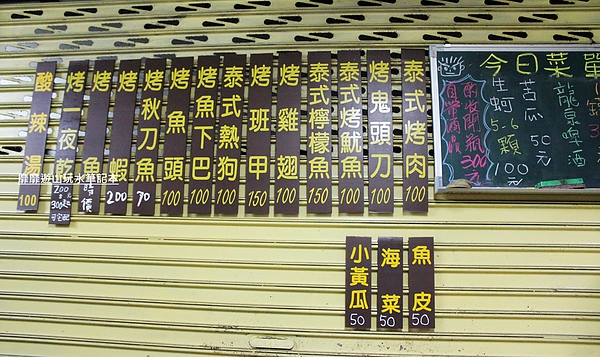 泰式烤肉 100
烤鬼頭刀 100
泰式烤魷魚 100
泰式檸檬魚 150
烤雞翅 100
烤班甲 150
泰式熱狗 100
烤魚下巴 100
烤魚頭 100
烤秋刀魚 70
烤蝦 200
烤魚 時價
烤一夜乾 200 300起 可宅配
酸辣湯 100
魚皮 50
海菜 50
小黃瓜 50
今日菜單
龍泉啤酒
苦瓜 50元
生蚵 5-6顆 100元
自帶酒
開瓶 300元
靡靡遊山玩水筆記本